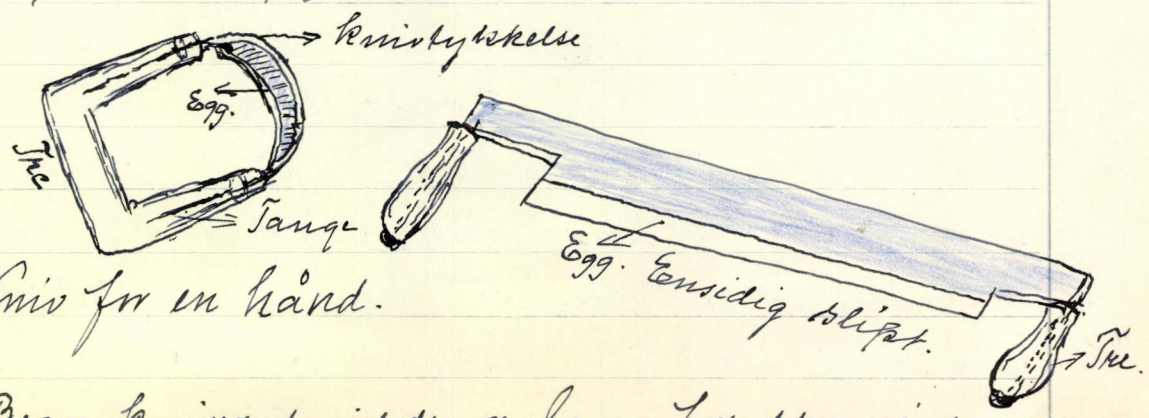 knivtykkelse
Egg.
Tre
Tange
Egg. Eensidig slipt.
Tre.
Kniv for en hånd.